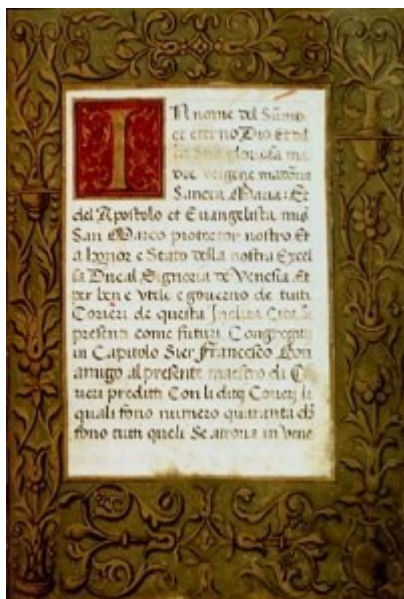 IN nome del Sumo
et eterno Dio Et del
la Sua gloriosa ma
dre vergene madona
Sancta Maria: Et
del Apostolo et Euangelista mis
San Marco protetor nostro Et
a honor e Stato della nostra Excel
la Ducal Signoria de Venesia Et
per ben e vtile e gouerno de tuti
Corieri de questa Inclita Cita
presenti come futuri Congregati
in Capitolo Sier Francesco Bon
amigo al presente maestro di Co
rieri preditti Con li diti Corieri li
quali sono numero quaranta
sono tutti queli Se atroua in Vene